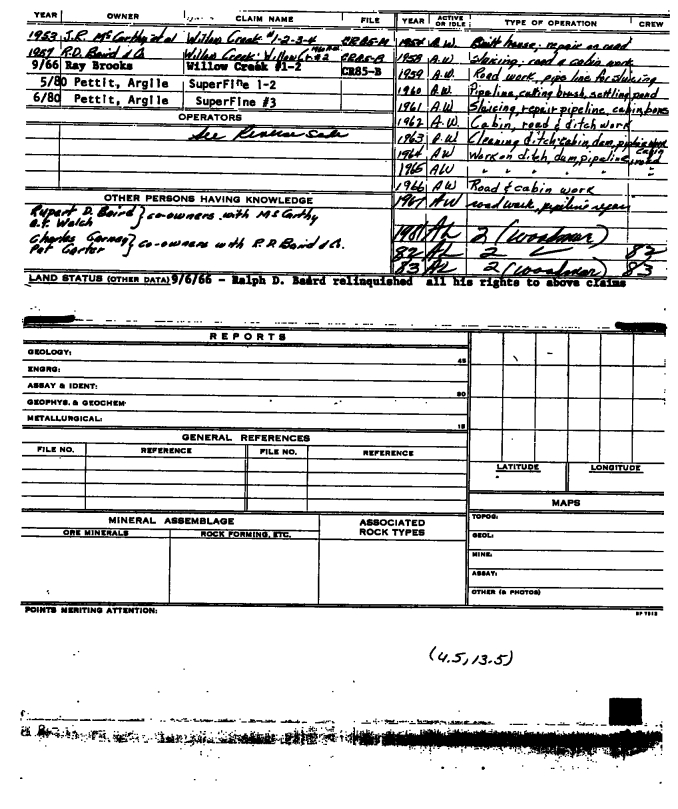 YEAR OWNER CLAIM NAME FILE YEAR ACTIVE OR IDLE TYPE OF OPERATION CREW
1953 J.R. McCarthy et al Willow Creek #1-2-3-4 CR85-M A.W. Built house; repair on road
1957 R.D. Baird & Co. Willow Creek CR85-B 1958 A.W. Sluicing; road & cabin work
9/66 Ray Brooks Willow Creek #1-2 CR85-B 1959 A.W. Road work, pipe line for sluicing
5/80 Pettit, Argile SuperFine 1-2 1960 A.W. Pipeline, cutting brush, settling pond
6/80 Pettit, Argile SuperFine #3 1961 A.W. Sluicing, repair pipeline, cabin
OPERATORS 1962 A.W. Cabin, road & ditch work
See Reverse Side 1963 A.W. Cleaning ditch, cabin, dam,
1964 A.W. Work on ditch, dam, pipeline, cabin road
1965 AW " " " "
1966 AW Road & cabin work
OTHER PERSONS HAVING KNOWLEDGE 1967 AW road work, pipeline repair
Rupert D. Baird
} co-owners with McCarthy
Walch
1981 AL 2 (woodman)
Charles
} co-owners with R.D. Baird & Co.
Pat Carter
82 AL 2 ✓ 82
83 AL 2 (woodman) 83
LAND STATUS (OTHER DATA) 9/6/66 - Ralph D. Baird relinquished all his rights to above claims
REPORTS
GEOLOGY: 45
ENGRG:
ASSAY & IDENT: 30
GEOPHYS. & GEOCHEM:
METALLURGICAL: 15
GENERAL REFERENCES
FILE NO. REFERENCE FILE NO. REFERENCE
LATITUDE LONGITUDE
MAPS
MINERAL ASSEMBLAGE ASSOCIATED ROCK TYPES
ORE MINERALS ROCK FORMING, ETC.
TOPOG:
GEOL:
MINE:
ASSAY:
OTHER (& PHOTOS)
POINTS MERITING ATTENTION:
(4.5, 13.5)